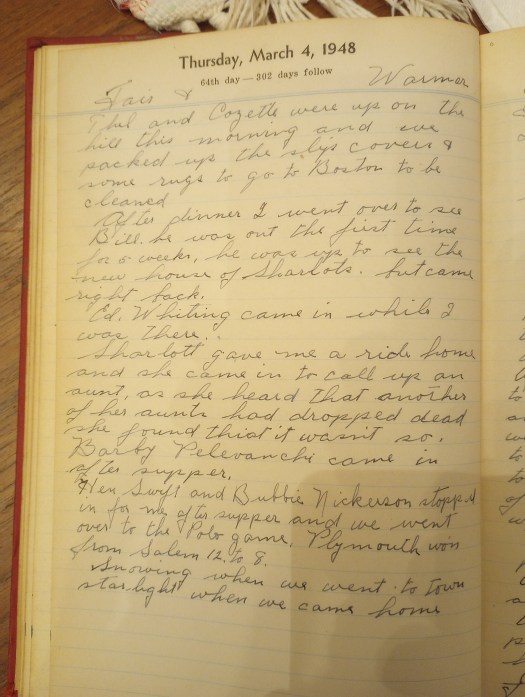 Thursday, March 4, 1948
64th day—302 days follow
Fair & Warmer
Phil and Cozette were up on the
hill this morning and we
packed up the slip covers &
some rugs to go to Boston to be
cleaned
After dinner I went over to see
Bill. he was out the first time
for 5 weeks, he was up to see the
new house of Sharlots. but came
right back.
Ed. Whiting came in while I
was there.
Sharlott gave me a ride home
and she came in to call up an
aunt, as she heard that another
of her aunts had dropped dead
she found that it wasnt so.
Barby Pelevanchi came in
after supper.
Hen Swift and Bubbie Nickerson stopped
in for me after supper and we went
over to the Polo game, Plymouth won
from Salem 12 to 8.
Snowing when we went to town
starlight when we came home